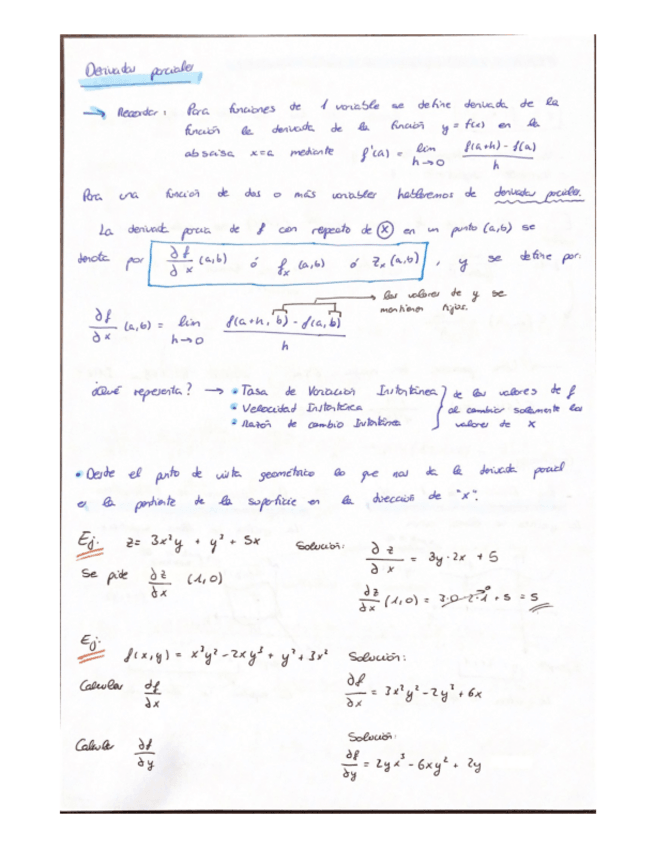 Derivadas parciales
→ Recordar: Para funciones de 1 variable se define derivada de la
función la derivada de la función y = f(x) en la
abscisa x=a mediante f'(a) = lim h→0 f(a+h) - f(a) / h
Para una función de dos o más variables hablaremos de derivadas parciales.
La derivada parcial de f con respecto de x en un punto (a,b) se
denota por ∂f/∂x (a,b) ó f_x (a,b) ó z_x (a,b), y se define por:
los valores de y se
mantienen fijos.
∂f/∂x (a,b) = lim h→0 f(a+h, b) - f(a,b) / h
¿Qué representa? → • Tasa de Variación Instantánea } de los valores de f
• Velocidad Instantánea al cambiar solamente los
• Razón de cambio Instantánea valores de x
• Desde el punto de vista geométrico lo que nos da la derivada parcial
es la pendiente de la superficie en la dirección de "x".
Ej. z = 3x²y + y³ + 5x Solución: ∂z/∂x = 3y·2x + 5
Se pide ∂z/∂x (1,0)
∂z/∂x (1,0) = 3·0·2·1 + 5 = 5
Ej.
f(x,y) = x³y² - 2xy³ + y² + 3x² Solución:
Calcular ∂f/∂x ∂f/∂x = 3x²y² - 2y³ + 6x
Solución:
Calcular ∂f/∂y ∂f/∂y = 2yx³ - 6xy² + 2y